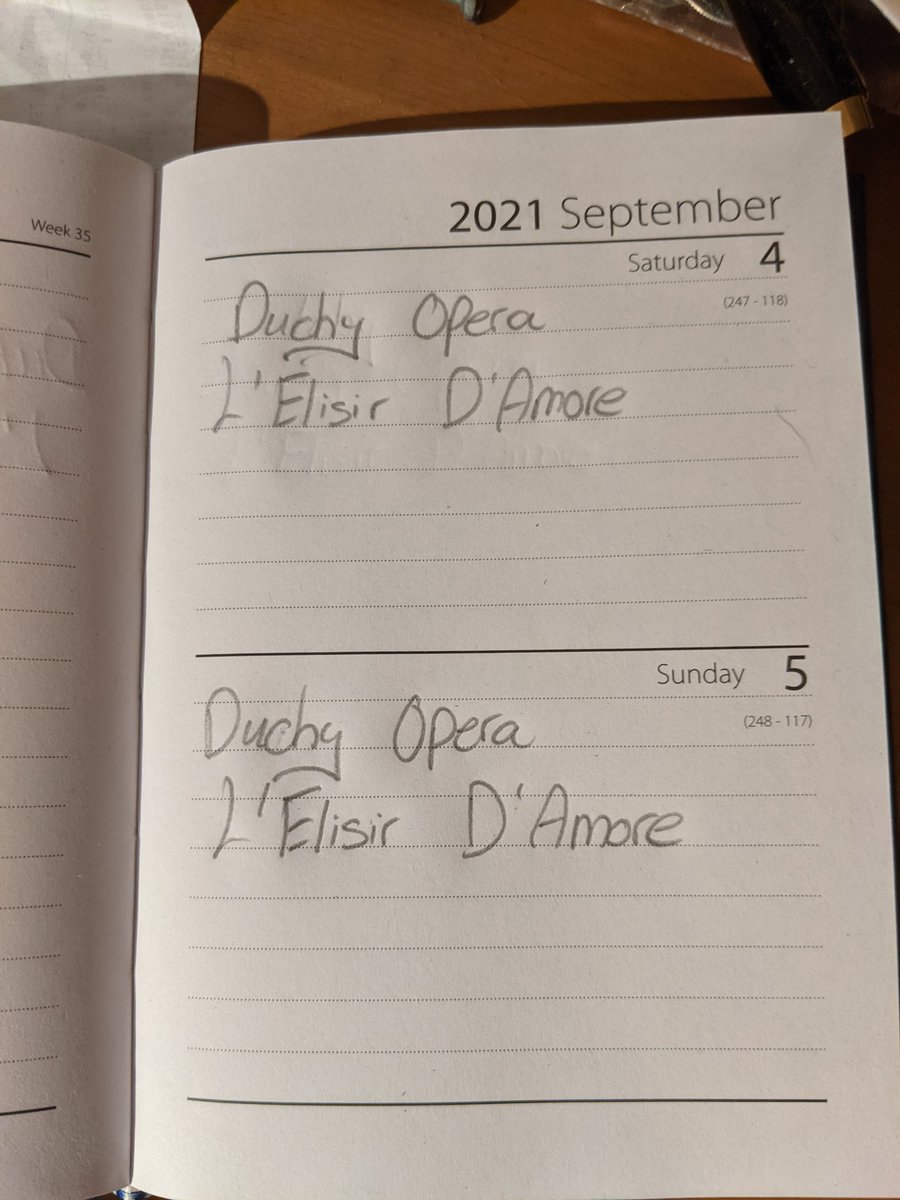 Week 35
2021 September
Saturday 4
(247 - 118)
Duchy Opera
L'Elisir D'Amore
Sunday 5
(248 - 117)
Duchy Opera
L'Elisir D'Amore